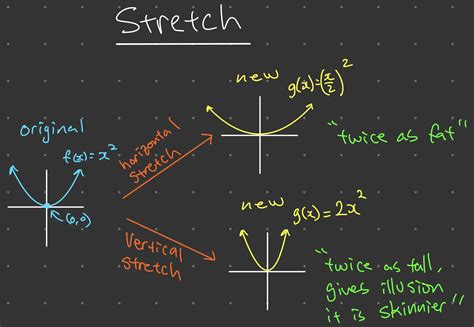 Stretch
original
f(x)=x²
(0,0)
horizontal
stretch
new
g(x)=(x/2)²
"twice as fat"
vertical
stretch
new
g(x) = 2x²
"twice as tall,
gives illusion
it is skinnier"